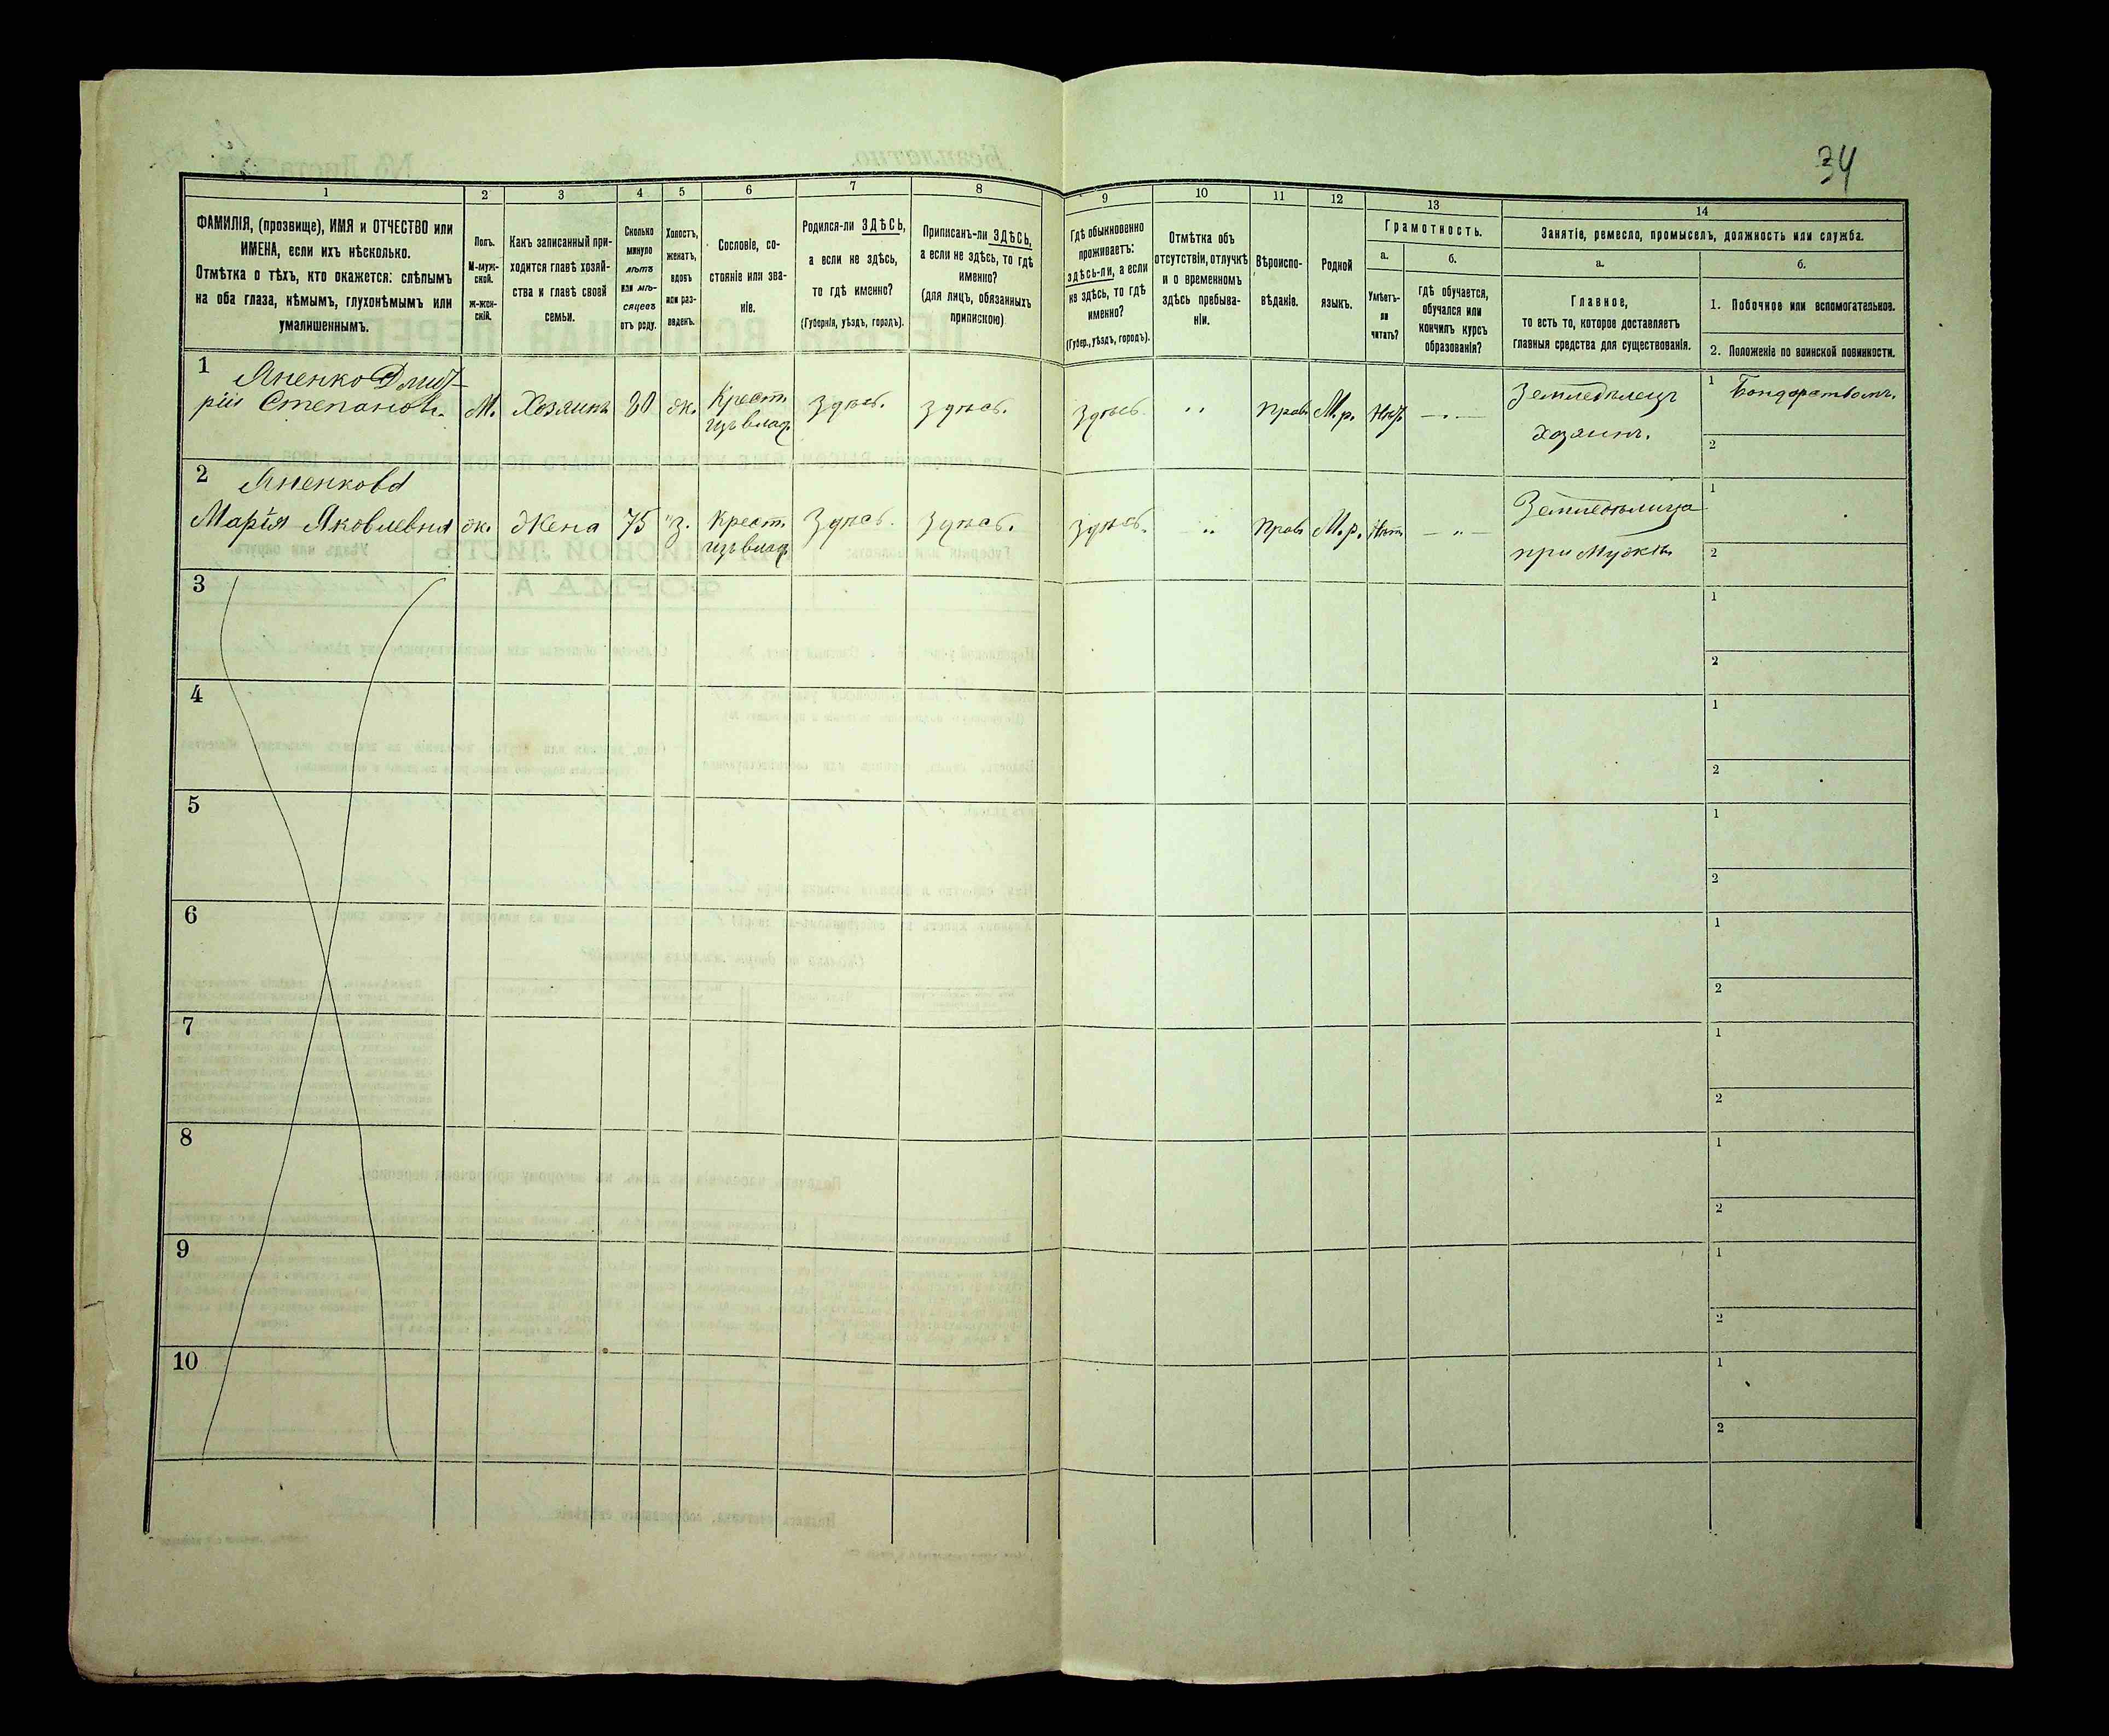 34
1
2
3
4
5
6
7
8
9
10
11
12
13
14
ФАМИЛІЯ, (прозвище), ИМЯ и ОТЧЕСТВО или
ИМЕНА, если ихъ нѣсколько.
Отмѣтка о тѣхъ, кто окажется: слѣпымъ
на оба глаза, нѣмымъ, глухонѣмымъ или
умалишеннымъ.
Полъ.
М-муж-
ской.
ж-жен-
скій.
Какъ записанный при-
ходится главѣ хозяй-
ства и главѣ своей
семьи.
Сколько
минуло
лѣтъ
или мѣ-
сяцевъ
отъ роду.
Холостъ,
женатъ,
вдовъ
или раз-
веденъ.
Сословіе, со-
стояніе или зва-
ніе.
Родился-ли ЗДѢСЬ,
а если не здѣсь,
то гдѣ именно?
(Губернія, уѣздъ, городъ).
Приписанъ-ли ЗДѢСЬ,
а если не здѣсь, то гдѣ
именно?
(для лицъ, обязанныхъ
припискою)
Гдѣ обыкновенно
проживаетъ:
здѣсь-ли, а если
не здѣсь, то гдѣ
именно?
(Губер., уѣздъ, городъ).
Отмѣтка объ
отсутствіи, отлучкѣ
и о временномъ
здѣсь пребыва-
ніи.
Вѣроиспо-
вѣданіе.
Родной
языкъ.
Грамотность.
а.
б.
Умѣетъ-
ли
читать?
гдѣ обучается,
обучался или
кончилъ курсъ
образованія?
Занятіе, ремесло, промыселъ, должность или служба.
а.
б.
Главное,
то есть то, которое доставляетъ
главныя средства для существованія.
1. Побочное или вспомогательное.
2. Положеніе по воинской повинности.
1
Яненко Дмит-
рій Степановъ.
М.
Хозяинъ
80
ж.
Крест.
изъ влад.
Здѣсь.
здѣсь.
здѣсь.
"
Прав.
М.р.
Нѣт
— " —
Земледѣлецъ
хозяинъ.
1
Бондарствомъ.
2
2
Яненкова
Марія Яковлевна
ж.
Жена
75
з.
Крест.
изъ влад.
Здѣсь.
Здѣсь.
здѣсь.
"
Прав.
М.р.
Нѣт
— " —
Земледѣлица
при Мужѣ.
1
2
3
1
2
4
1
2
5
1
2
6
1
2
7
1
2
8
1
2
9
1
2
10
1
2